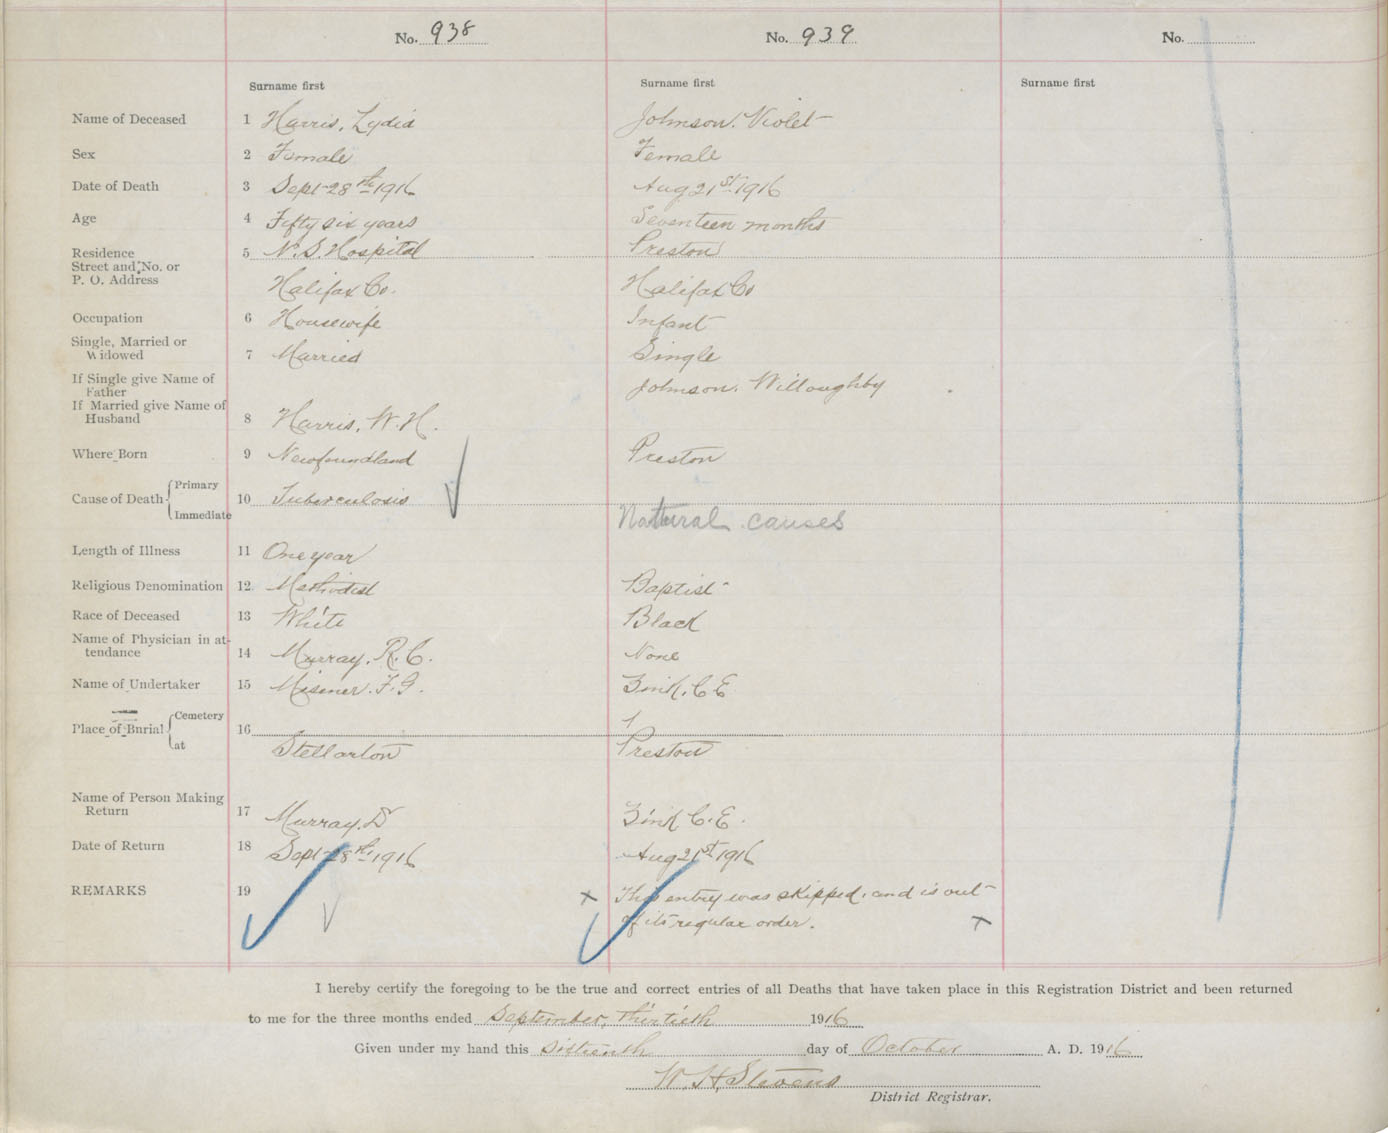 No. 938 No. 939 No.
Surname first Surname first Surname first
Name of Deceased 1 Harris, Lydia Johnson. Violet
Sex 2 Female Female
Date of Death 3 Sept 28th 1916 Aug 21st 1916
Age 4 Fifty six years Seventeen months
Residence 5 N. S. Hospital Preston
Street and No. or
P. O. Address Halifax Co. Halifax Co
Occupation 6 Housewife Infant
Single, Married or
Widowed 7 Married Single
If Single give Name of
Father Johnson. Willoughby
If Married give Name of
Husband 8 Harris, W. H.
Where Born 9 Newfoundland Preston
Primary
Cause of Death 10 Tuberculosis
Immediate Natural causes
Length of Illness 11 One year
Religious Denomination 12 Methodist Baptist
Race of Deceased 13 White Black
Name of Physician in at-
tendance 14 Murray, R. C. None
Name of Undertaker 15 Misener. F. G. Zink, C E
Cemetery
Place of Burial 16
at Stellarton Preston
Name of Person Making
Return 17 Murray. D Zink C. E.
Date of Return 18 Sept 28th 1916 Aug 21st 1916
REMARKS 19 x This entry was skipped, and is out
of its regular order. x
I hereby certify the foregoing to be the true and correct entries of all Deaths that have taken place in this Registration District and been returned
to me for the three months ended September, Thirtieth 1916
Given under my hand this Sixteenth day of October A. D. 1916
W. H. Stevens
District Registrar.